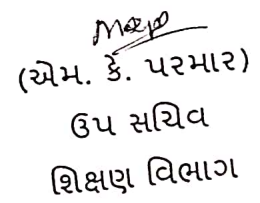 (એમ. કે. પરમાર)
ઉપ સચિવ
શિક્ષણ વિભાગ